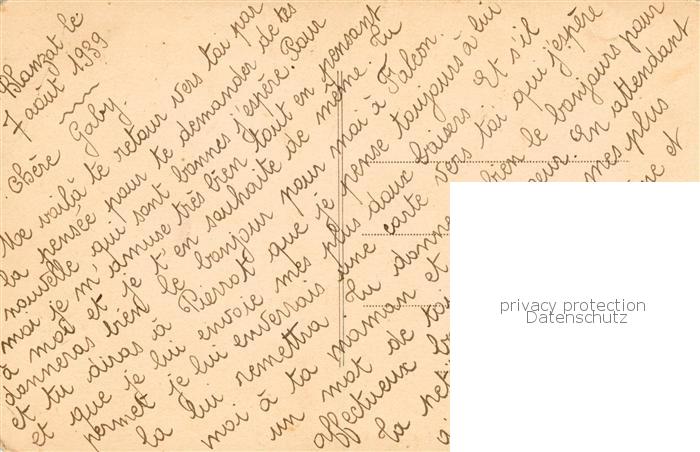 Blanzat le
7 août 1939
Chère Gaby.
Me voilà te retour vers toi par
la pensée pour te demander de tes
nouvelle qui sont bonnes j'espère. Pour
moi je m'amuse très bien tout en pensant
à moat et je t'en souhaite de même. Tu
donneras bien le bonjour pour moi à Falcon.
et tu diras à Pierrot que je pense toujours à lui
et que je lui envoie mes plus doux baisers. Et s'il
permet je lui enverrais une carte vers toi qui j'espère
la lui remettra. Tu donne bien le bonjours pour
moi à ta maman et soeur. En attendant
un mot de toi mes plus
affectueux et
la
privacy protection
Datenschutz